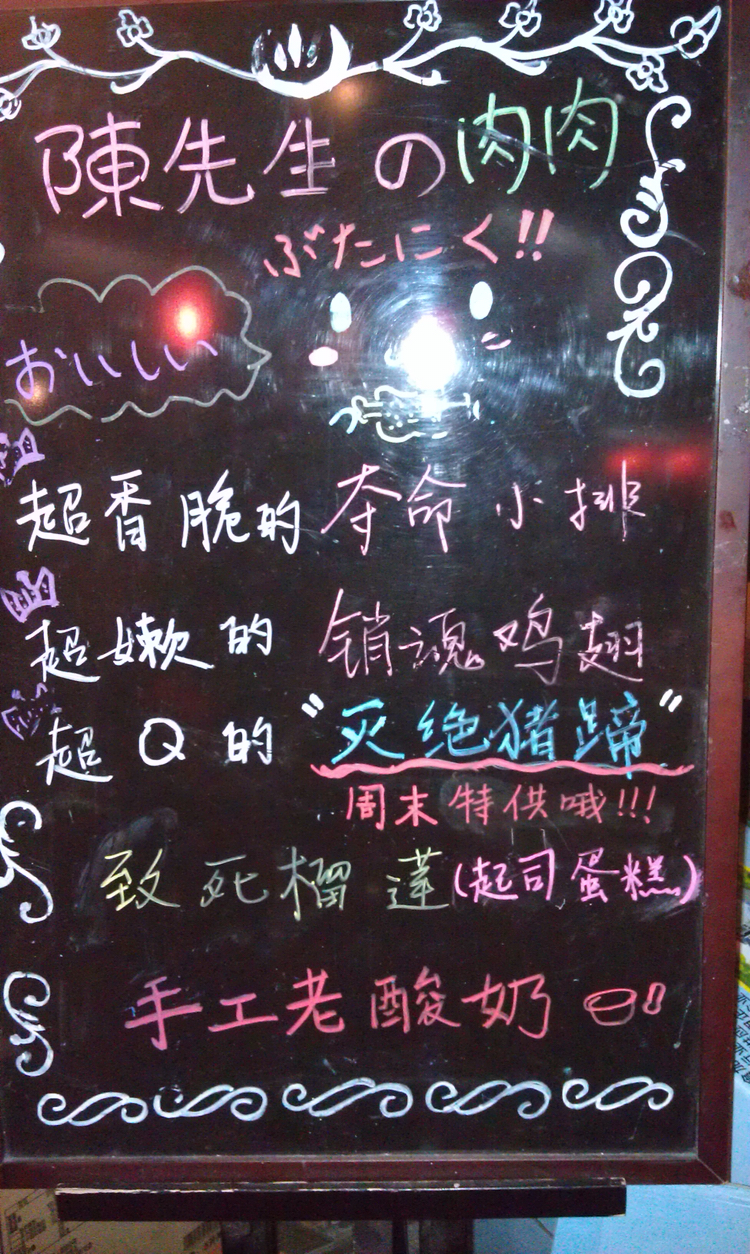 陳先生の肉肉
ぶたにく!!
おいしい
超香脆的夺命小排
超嫩的销魂鸡翅
超Q的"灭绝猪蹄"
周末特供哦!!!
致死榴莲(起司蛋糕)
手工老酸奶